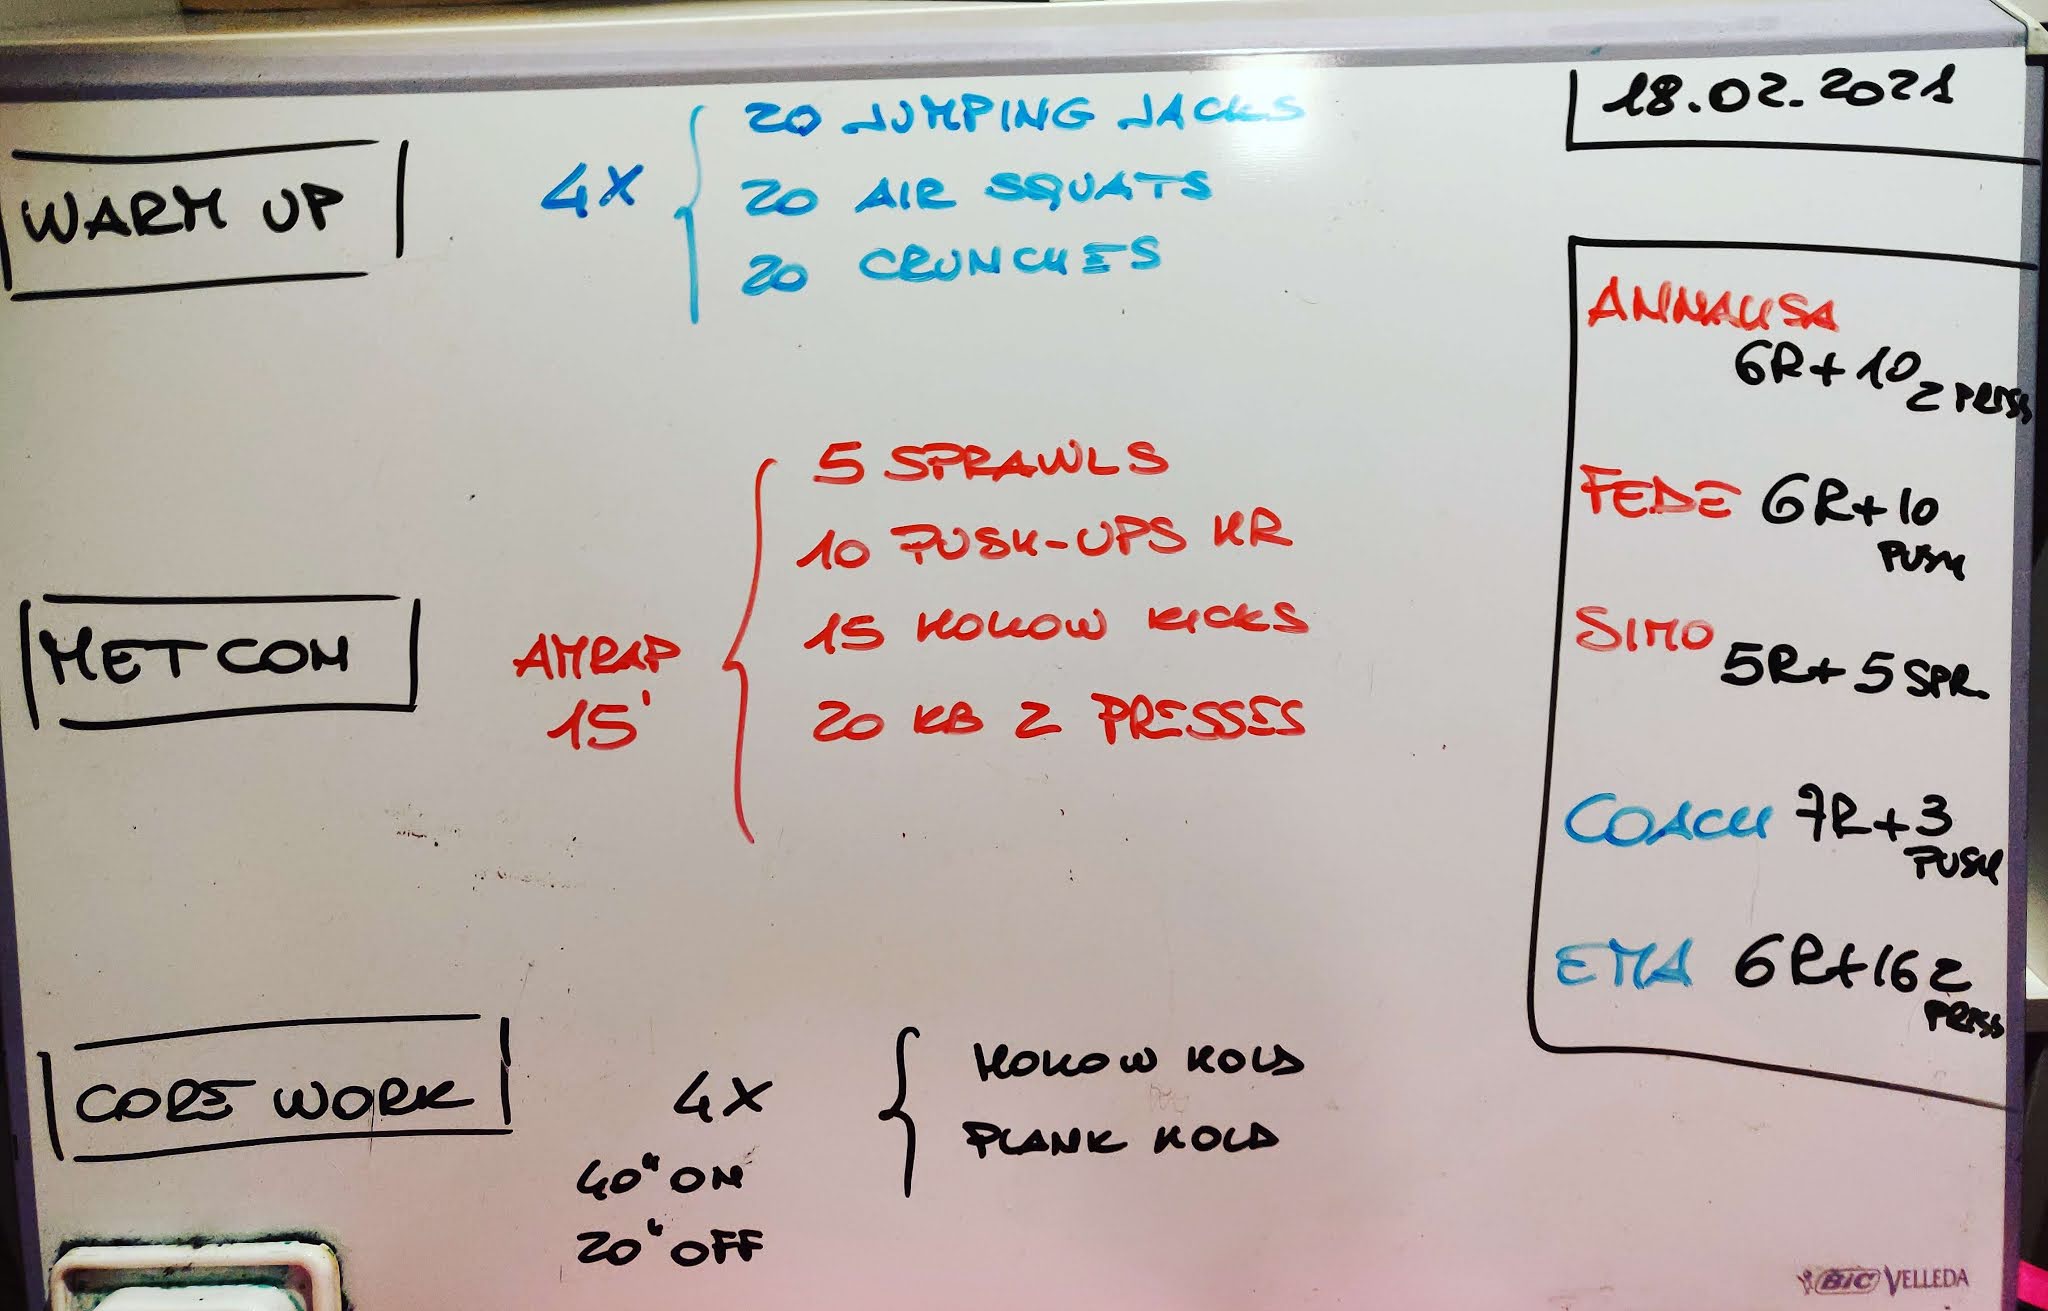 18.02.2021
WARM UP
4X
20 JUMPING JACKS
20 AIR SQUATS
20 CRUNCHES
METCON
AMRAP
15'
5 SPRAWLS
10 PUSH-UPS HR
15 HOLLOW KICKS
20 KB 2 PRESSES
CORE WORK
4X
40" ON
20" OFF
HOLLOW HOLD
PLANK HOLD
ANNALISA
6R+10
2 PRESS
FEDE 6R+10
PUSH
SIMO
5R+5 SPR.
COACH 7R+3
PUSH
EMA 6R+16 2
PRESS
BIC VELLEDA